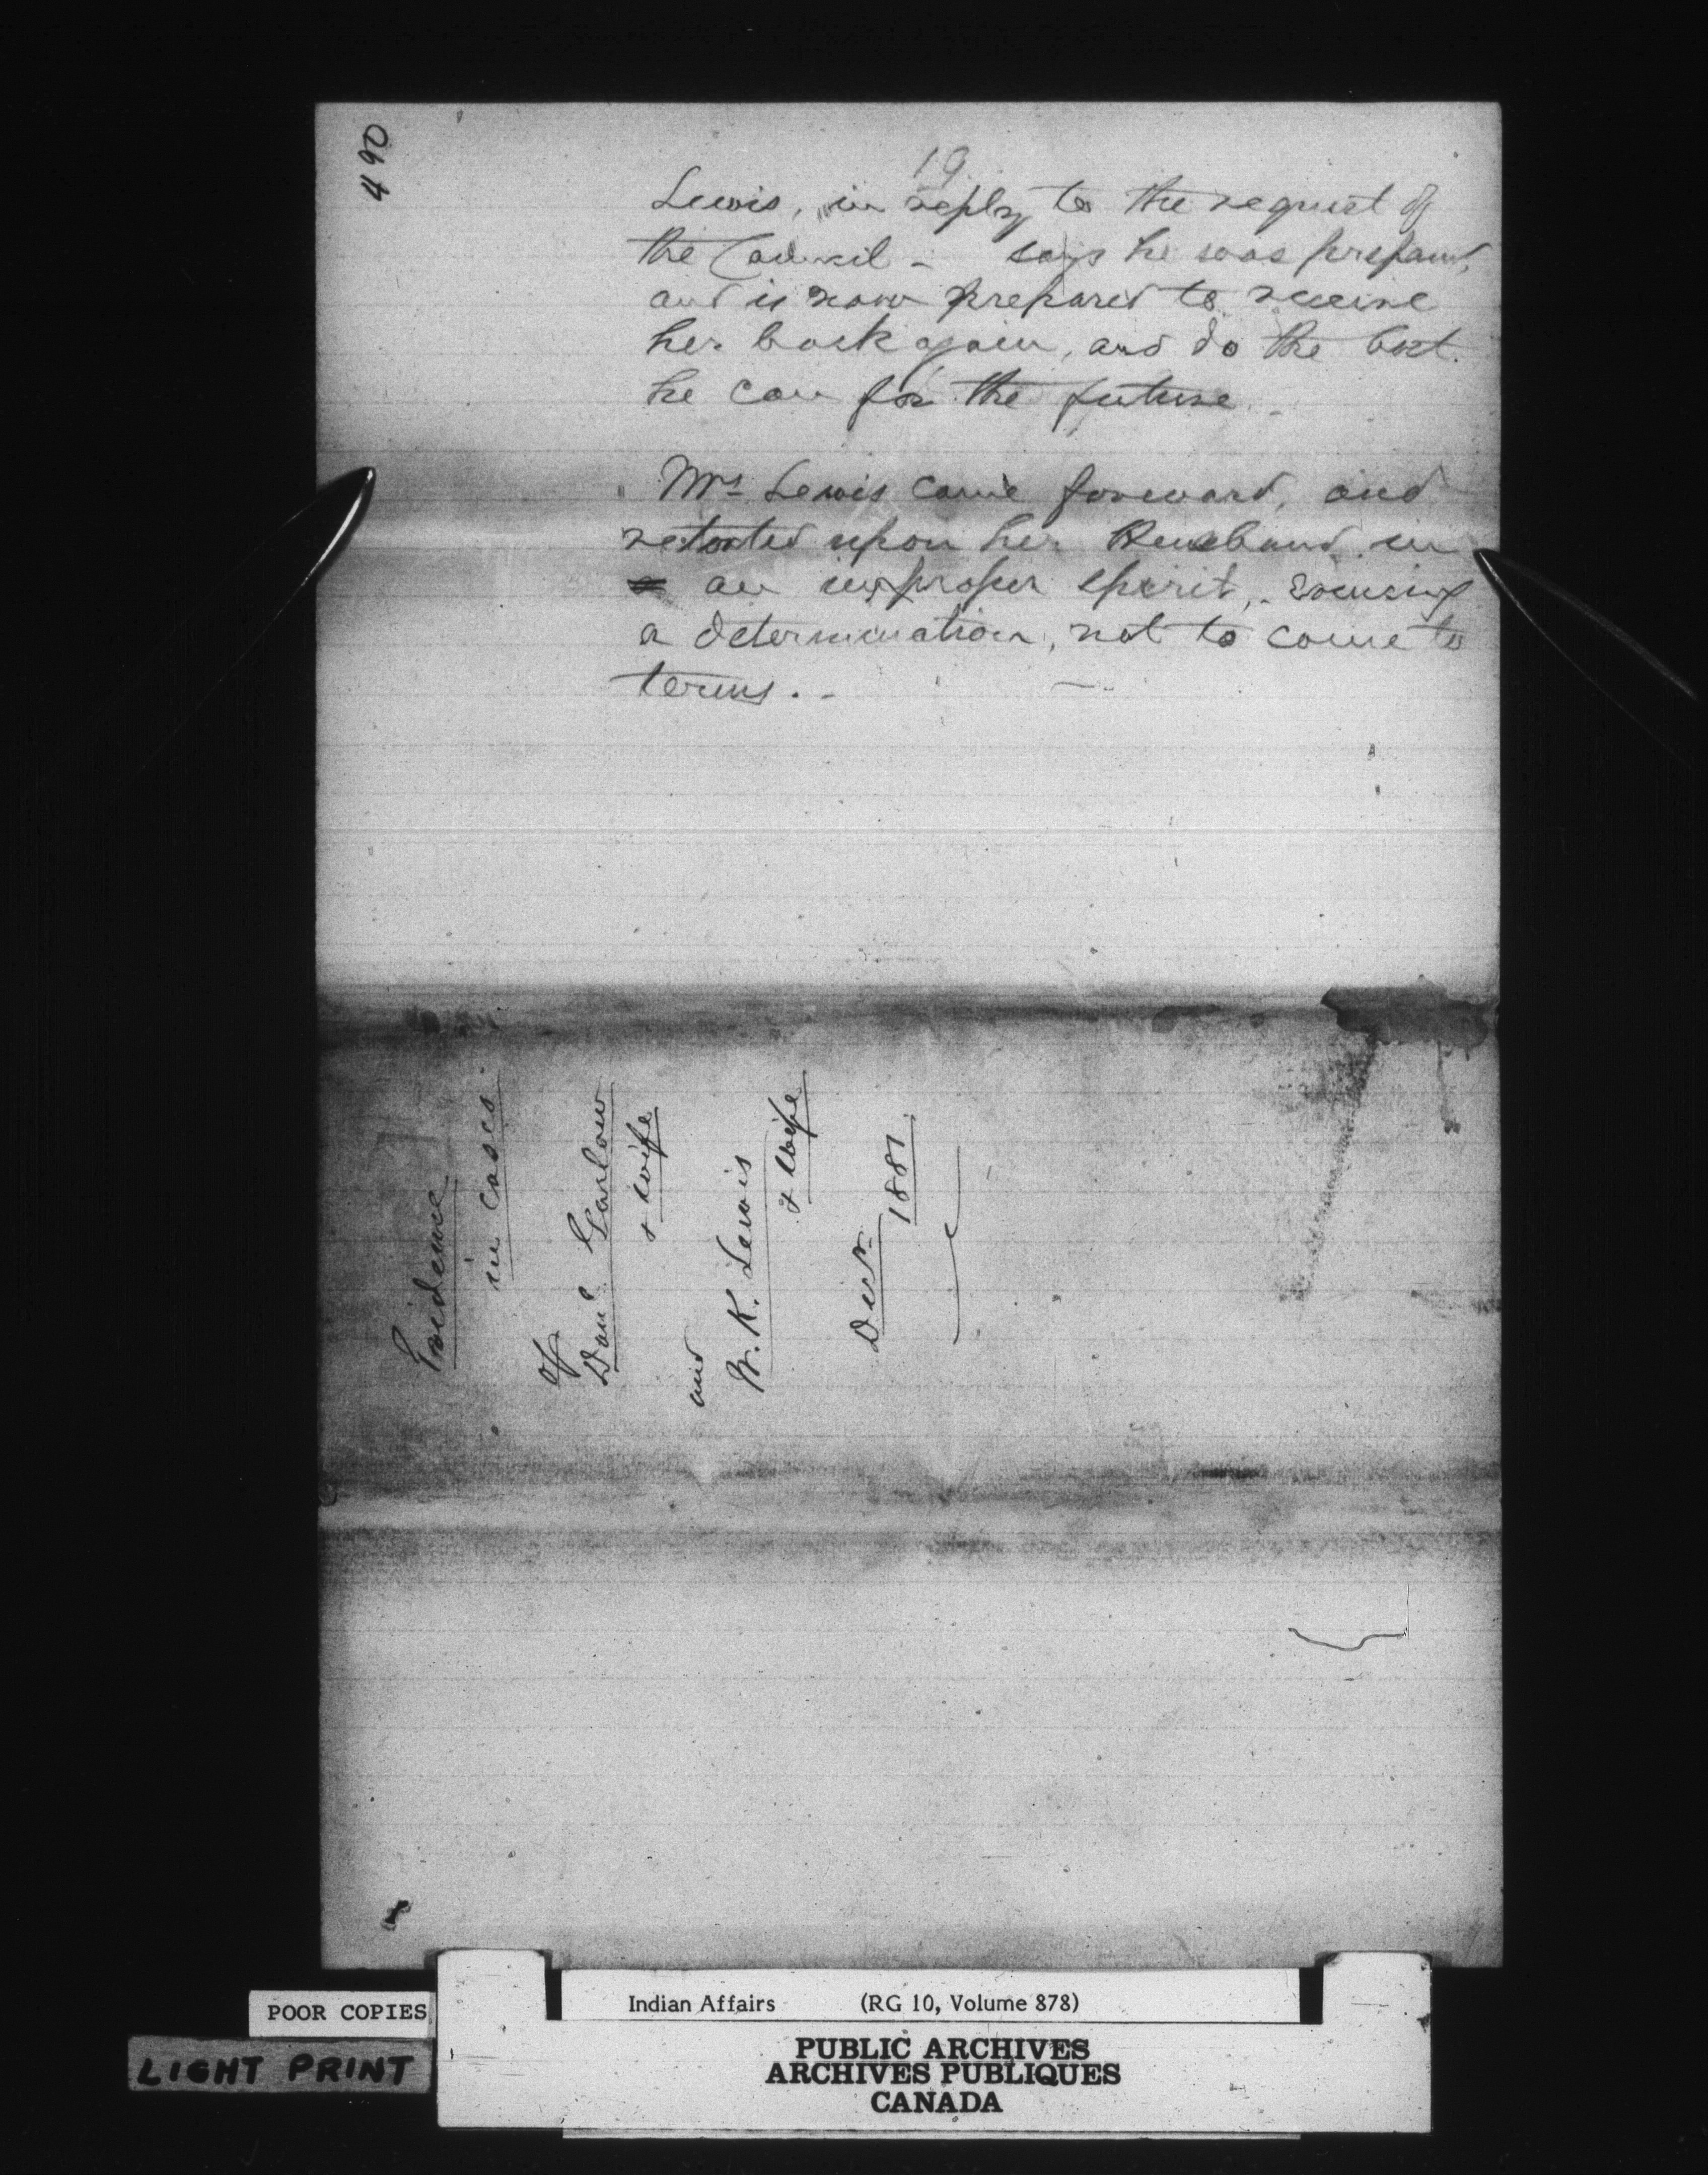 490
19
Lewis, in reply to the request of
the Council - says he was prepared,
and is now prepared to receive
her back again, and do the best
he can for the future -
Mrs Lewis came forward, and
retorted upon her Husband in
an improper spirit, - evincing
a determination, not to come to
terms. -
Evidence
in cases
of
Danl Garlow
& wife
and
W. K. Lewis
& wife
Decr
1881
POOR COPIES
LIGHT PRINT
Indian Affairs (RG 10, Volume 878)
PUBLIC ARCHIVES
ARCHIVES PUBLIQUES
CANADA